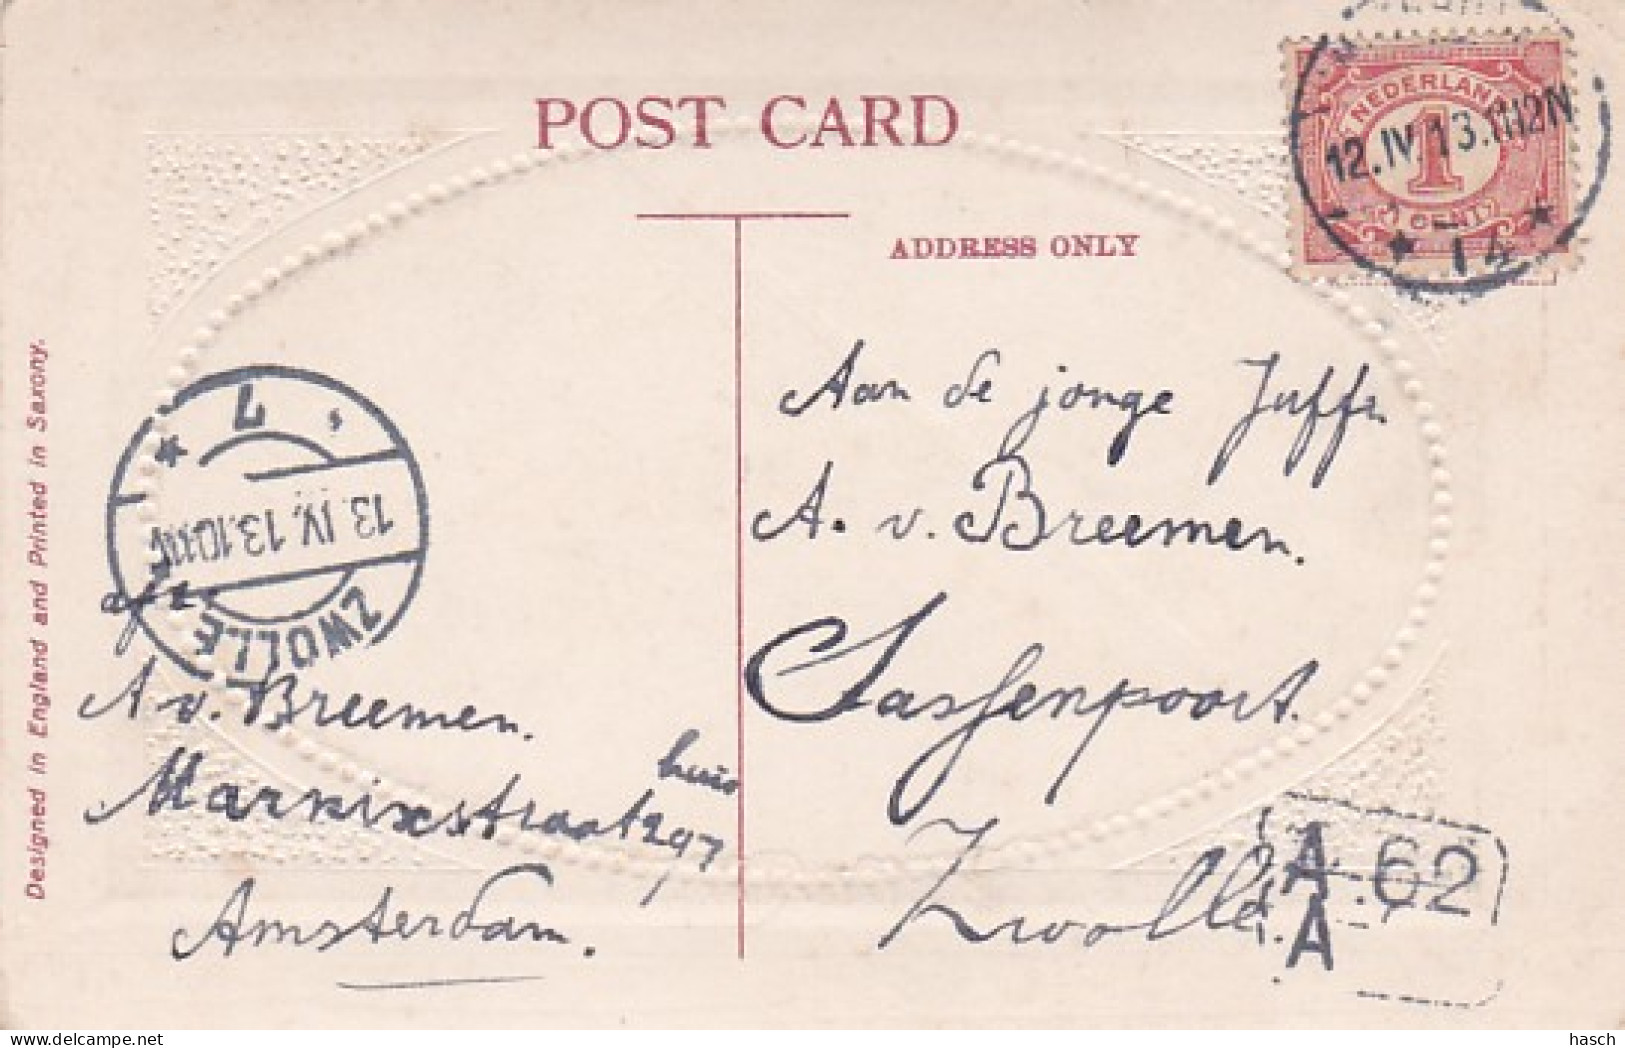 POST CARD
ADDRESS ONLY
NEDERLAND
1
CENT
12.IV.13.
14
Designed in England and Printed in Saxony.
7
13.IV.13.
ZWOLLE
afz.
A v. Breemen.
Marnixstraat 297
huis
Amsterdam.
Aan de jonge Juffr.
A. v. Breemen.
Sassenpoort.
Zwolle.
A 62
A
delcampe.net
hasch